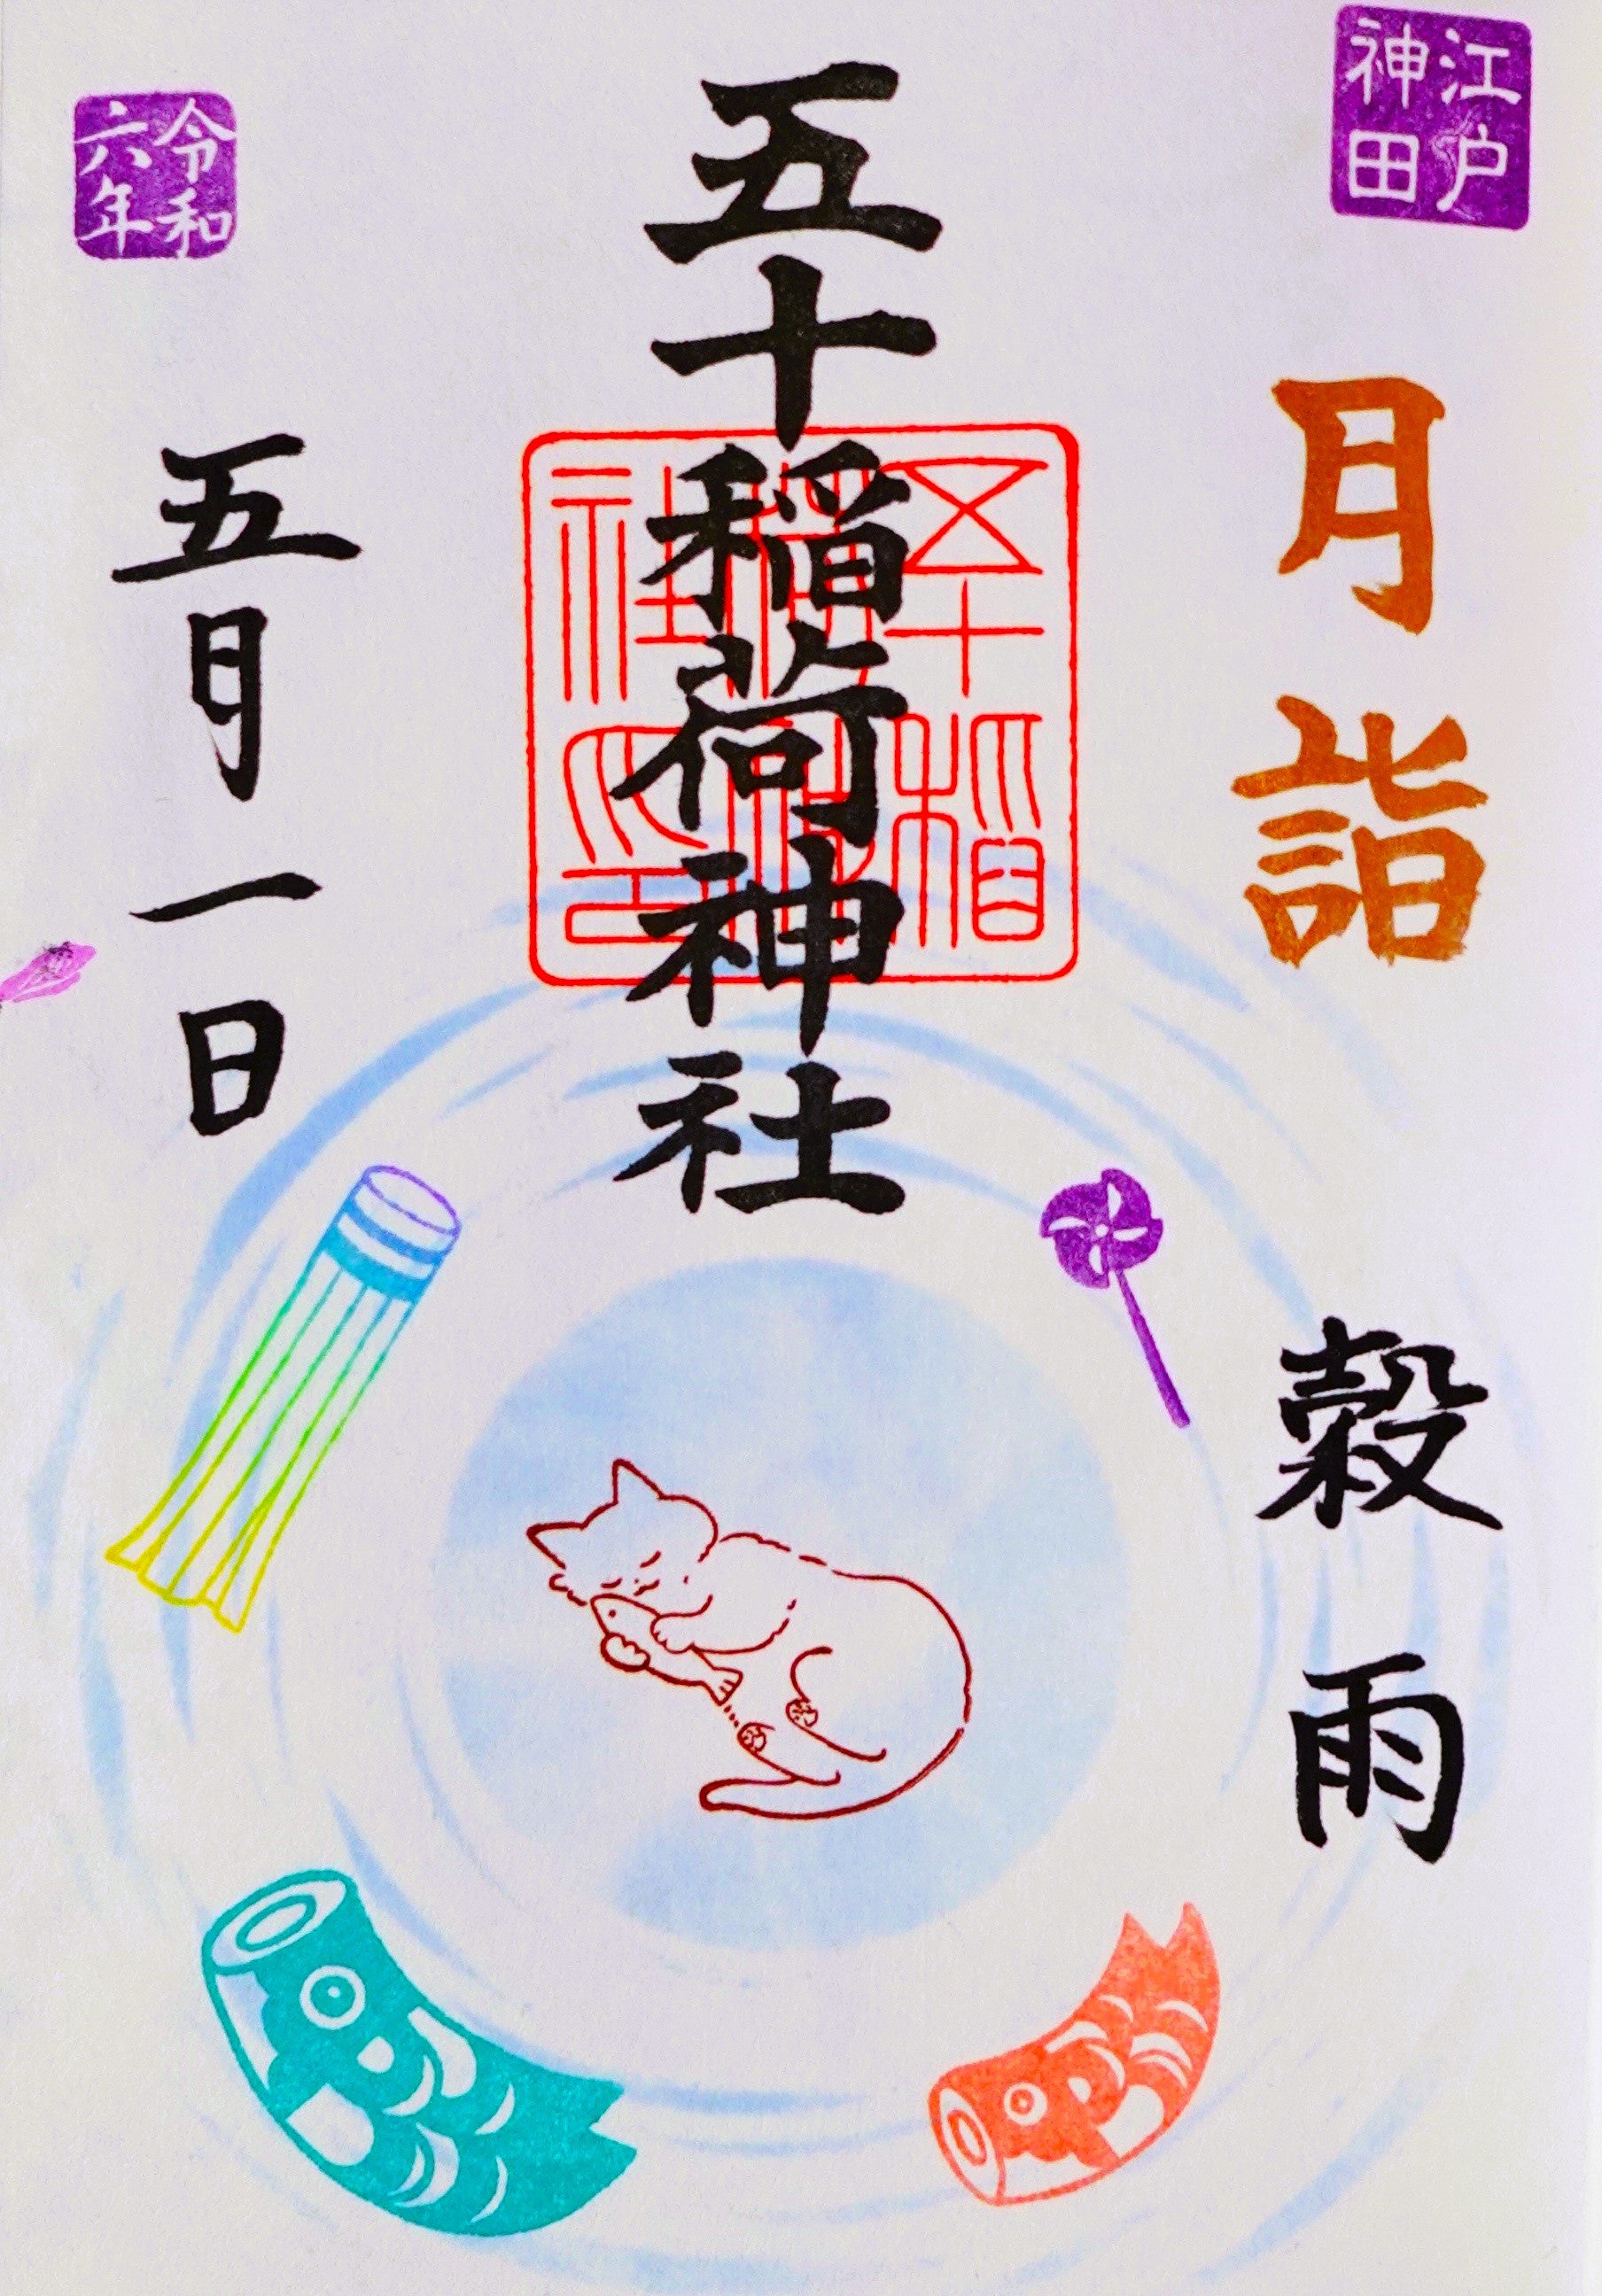 江戸
神田
月詣
穀雨
五十稲荷神社
五十稲
荷神
社之印
令和
六年
五月一日